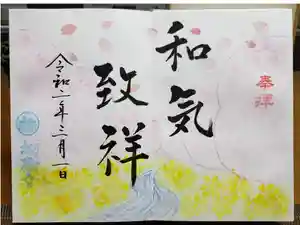 奉拝
和気
致祥
令和二年三月一日